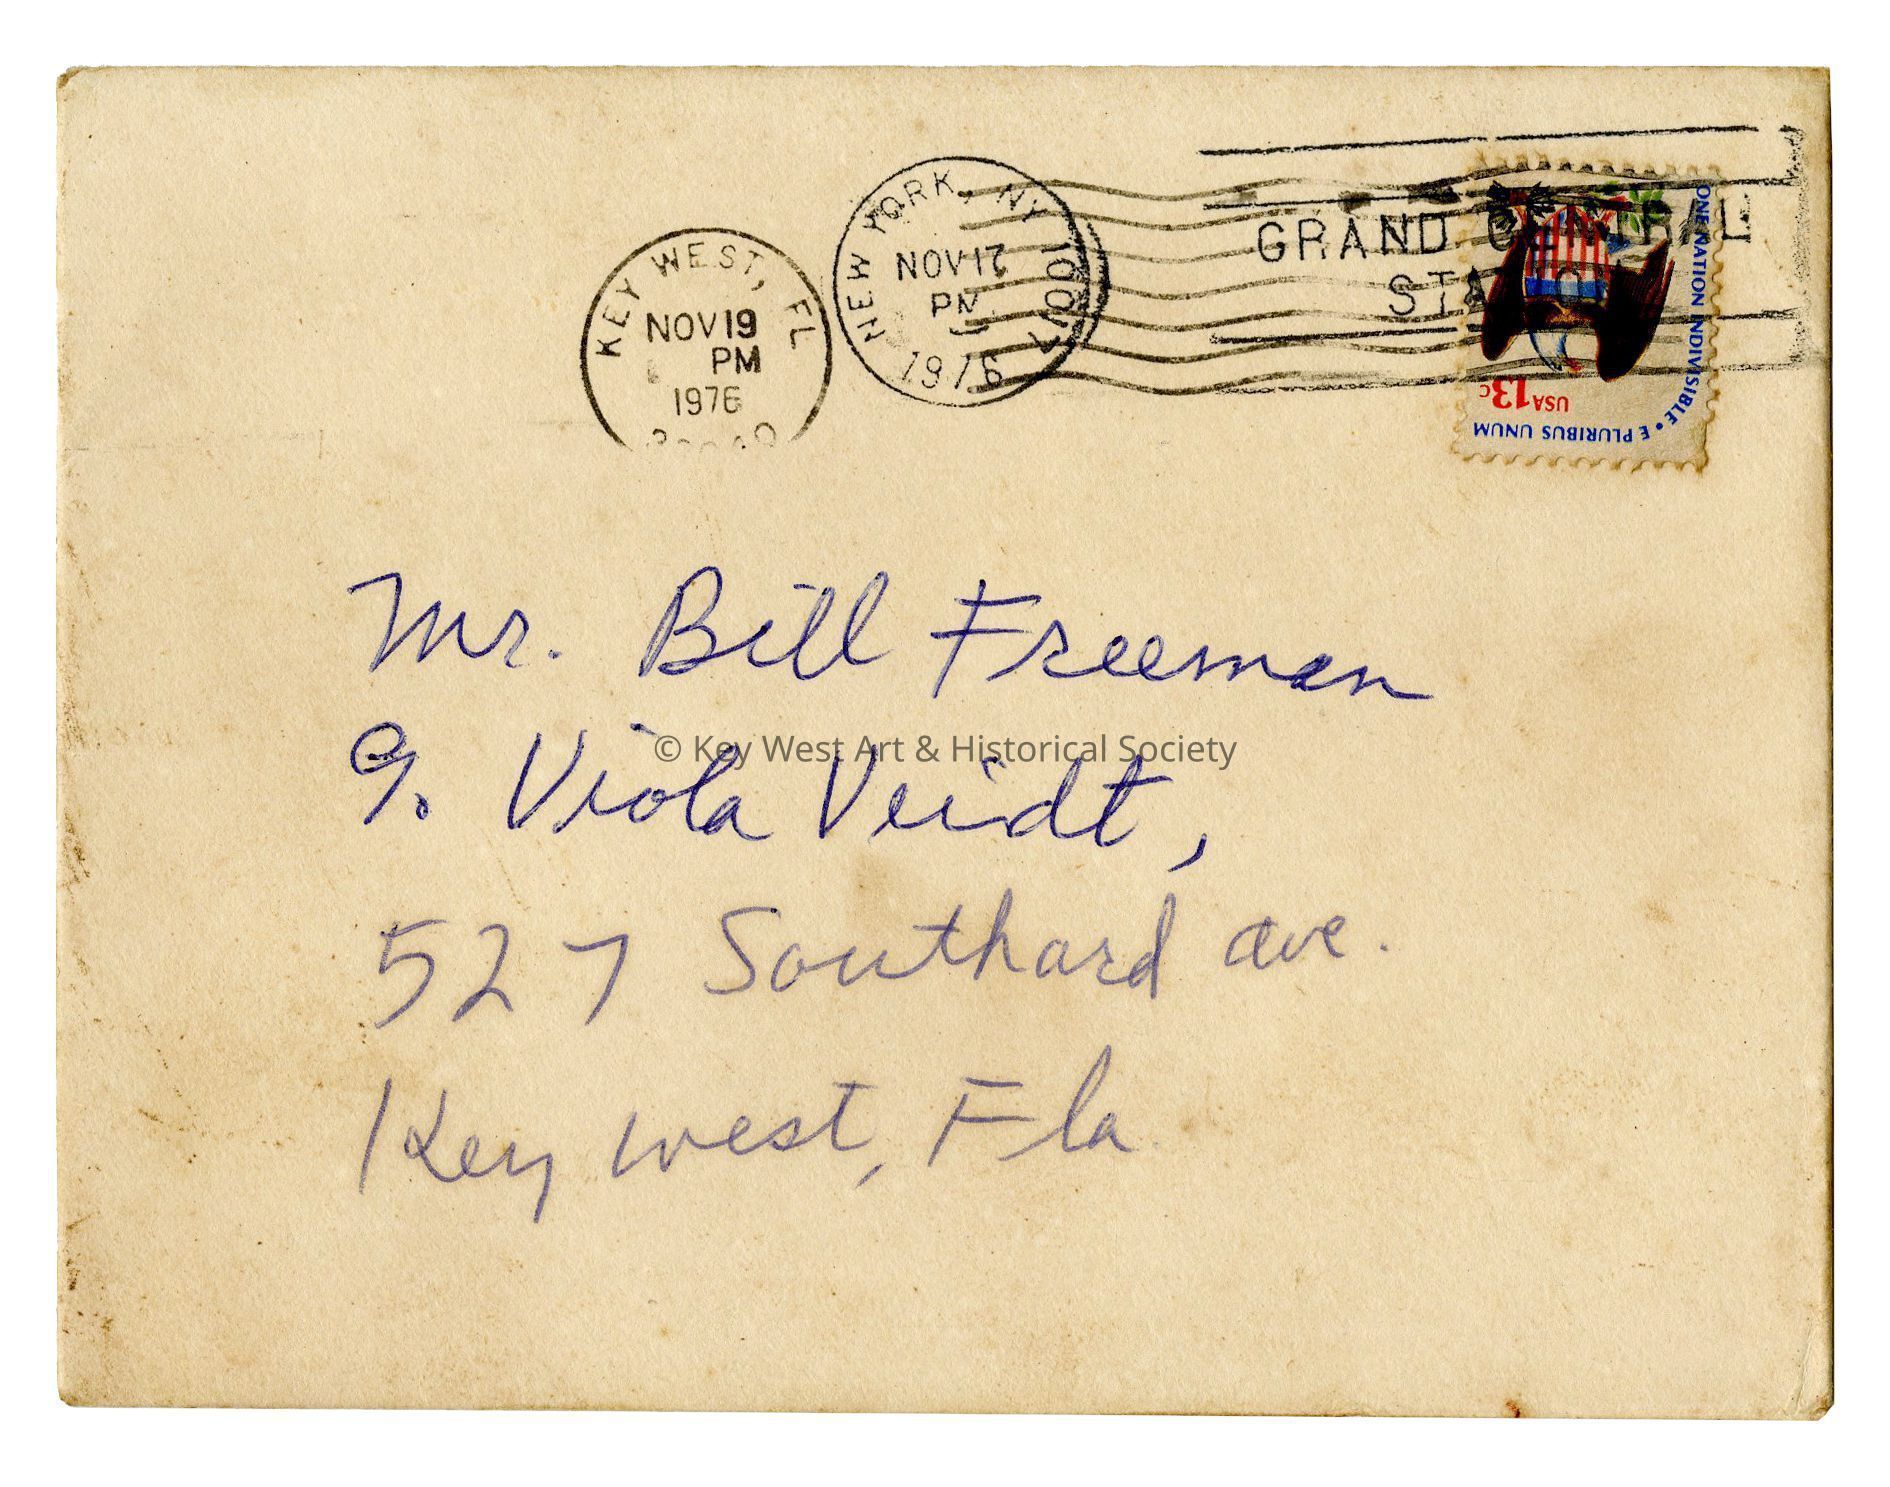 KEY WEST, FL
NOV 19
PM
1976
NEW YORK, NY 10017
NOV 17
PM
1976
GRAND CENTRAL
STATION
ONE NATION INDIVISIBLE • E PLURIBUS UNUM
USA 13c
Mr. Bill Freeman
© Key West Art & Historical Society
Viola Veidt,
527 Southard ave.
Key west, Fla